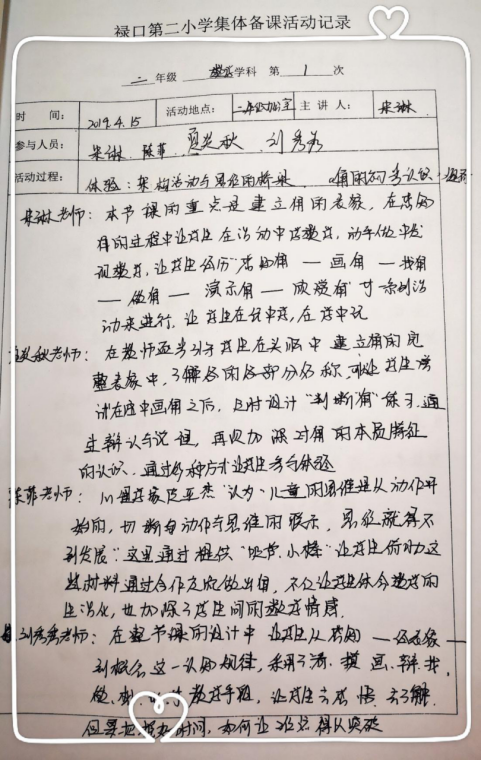 禄口第二小学集体备课活动记录
二 年级 数学 学科 第 1 次
时 间： 2019.4.15 活动地点： 二年级办公室 主 讲 人： 朱琳
参与人员： 朱琳 陈菲 夏发秋 刘秀秀
活动过程： 体验：架构活动与思维的桥梁 《角的初步认识》
朱琳老师：本节课的重点是建立角的表象，在认
角的过程中让学生在活动中学数学，动手做中发
现数学，让学生经历"找角 — 画角 — 找角
— 做角 — 演示角 — 等一系列活
动来进行，让学生在玩中学，在学中玩
夏发秋老师：在教师逐步引导学生在头脑中建立角的完
整表象中，了解角的各部分名称，让学生尝
试在纸中画角之后，及时设计"判断角"练习，通
过辩认与说理，再次加深对角的本质特征
的认识，通过多种方式让学生参与体验
陈菲老师：心理学家皮亚杰认为"儿童的思维是从动作开
始的，切断了动作与思维的联系，思维就得不
到发展"这里通过提供"吸管、小棒"让学生借助这
些材料通过合作交流做出角，不仅让学生体会数学的
生活化，也加深了学生间的数学情感。
刘秀秀老师：在整节课的设计中让学生从
到概念这一认知规律，采用了看、摸、画、辩、找、
做、 等教学手段，让学生去感悟、去了解，
但要把握好时间，如何让难点得以突破